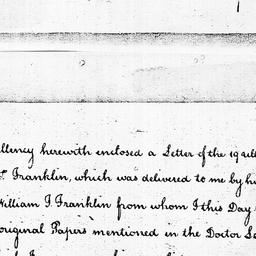 llency herewith enclosed a Letter of the 19 ult
Franklin, which was delivered to me by hi
William T. Franklin from whom I this Day
original Papers mentioned in the Doctor Le